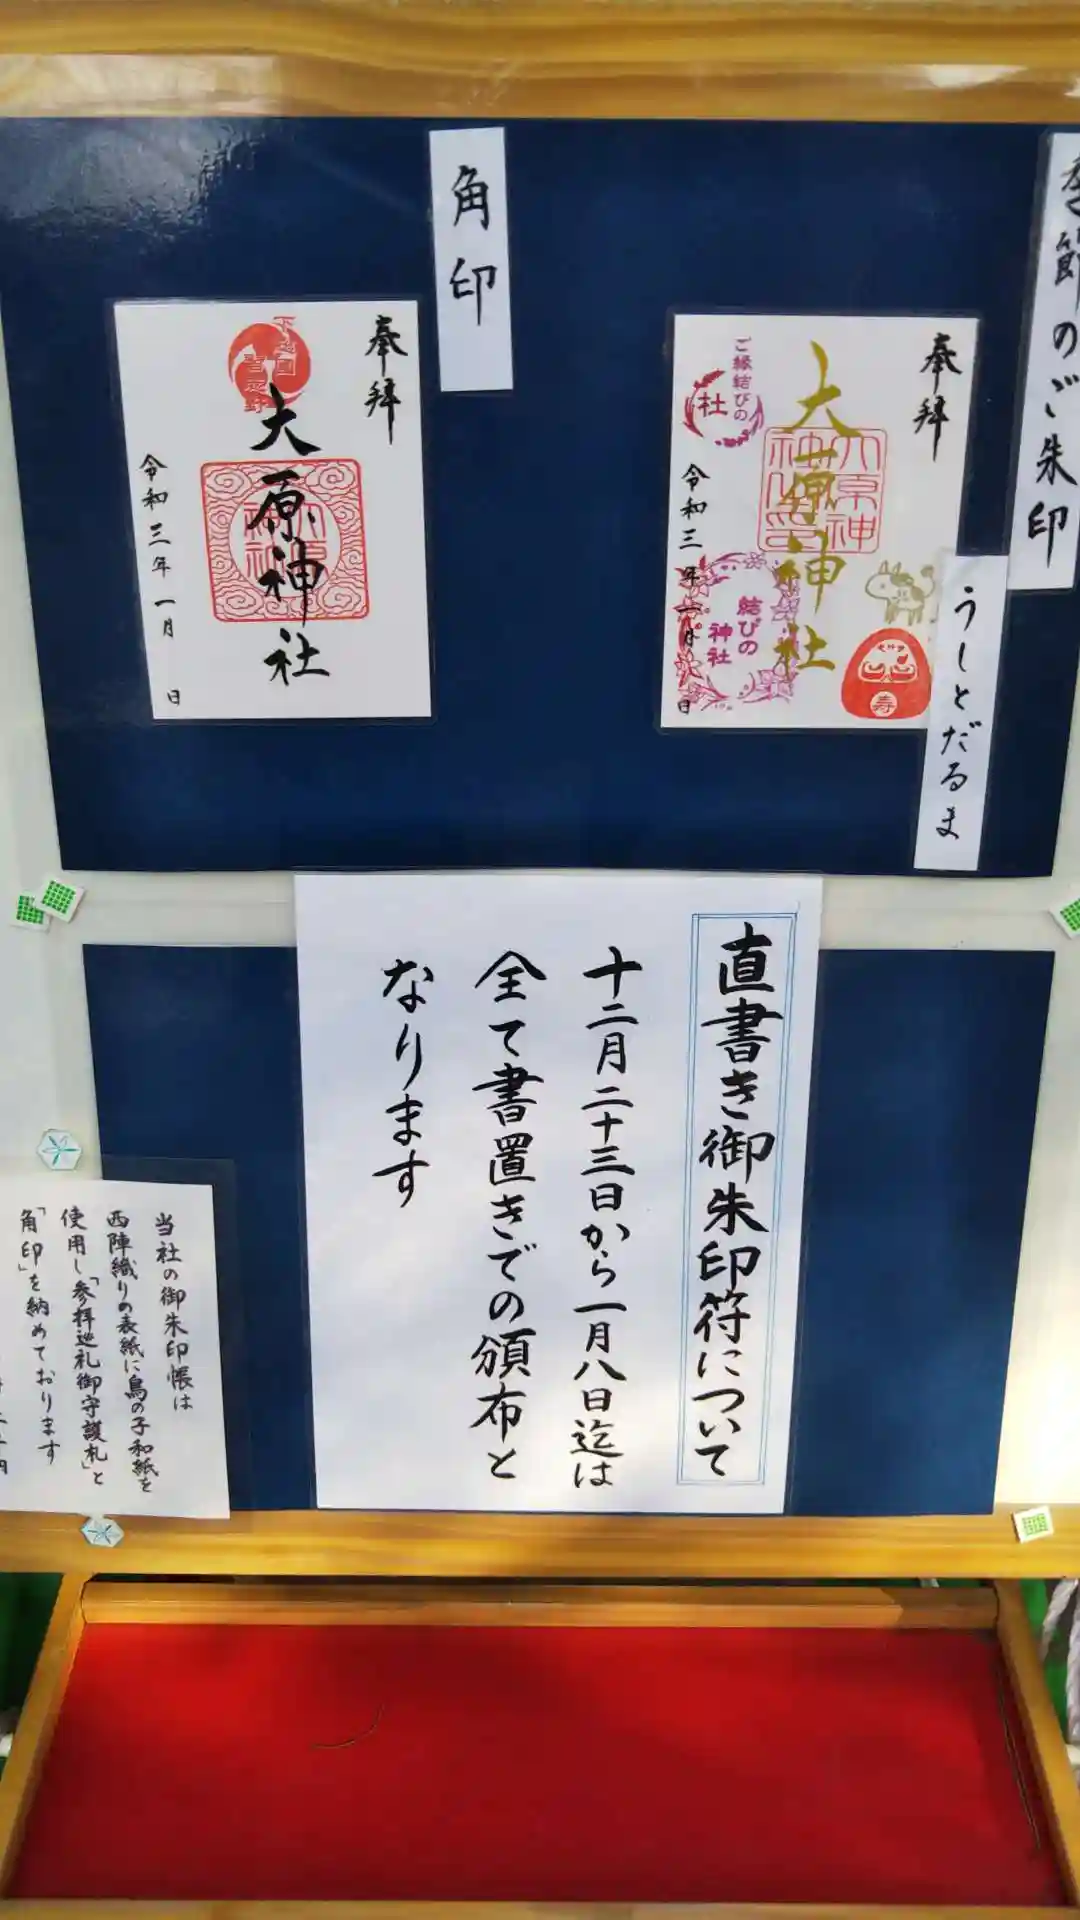 季節のご朱印
うしとだるま
奉拝
大原神社
大原神社
ご縁結びの
社
結びの
神社
令和三年一月
日
寿
角印
奉拝
下総国
習志野
大原神社
令和三年一月
日
直書き御朱印符について
十二月二十三日から一月八日迄は
全て書置きでの頒布と
なります
当社の御朱印帳は
西陣織りの表紙に鳥の子和紙を
使用し「参拝巡礼御守護札」と
「角印」を納めております